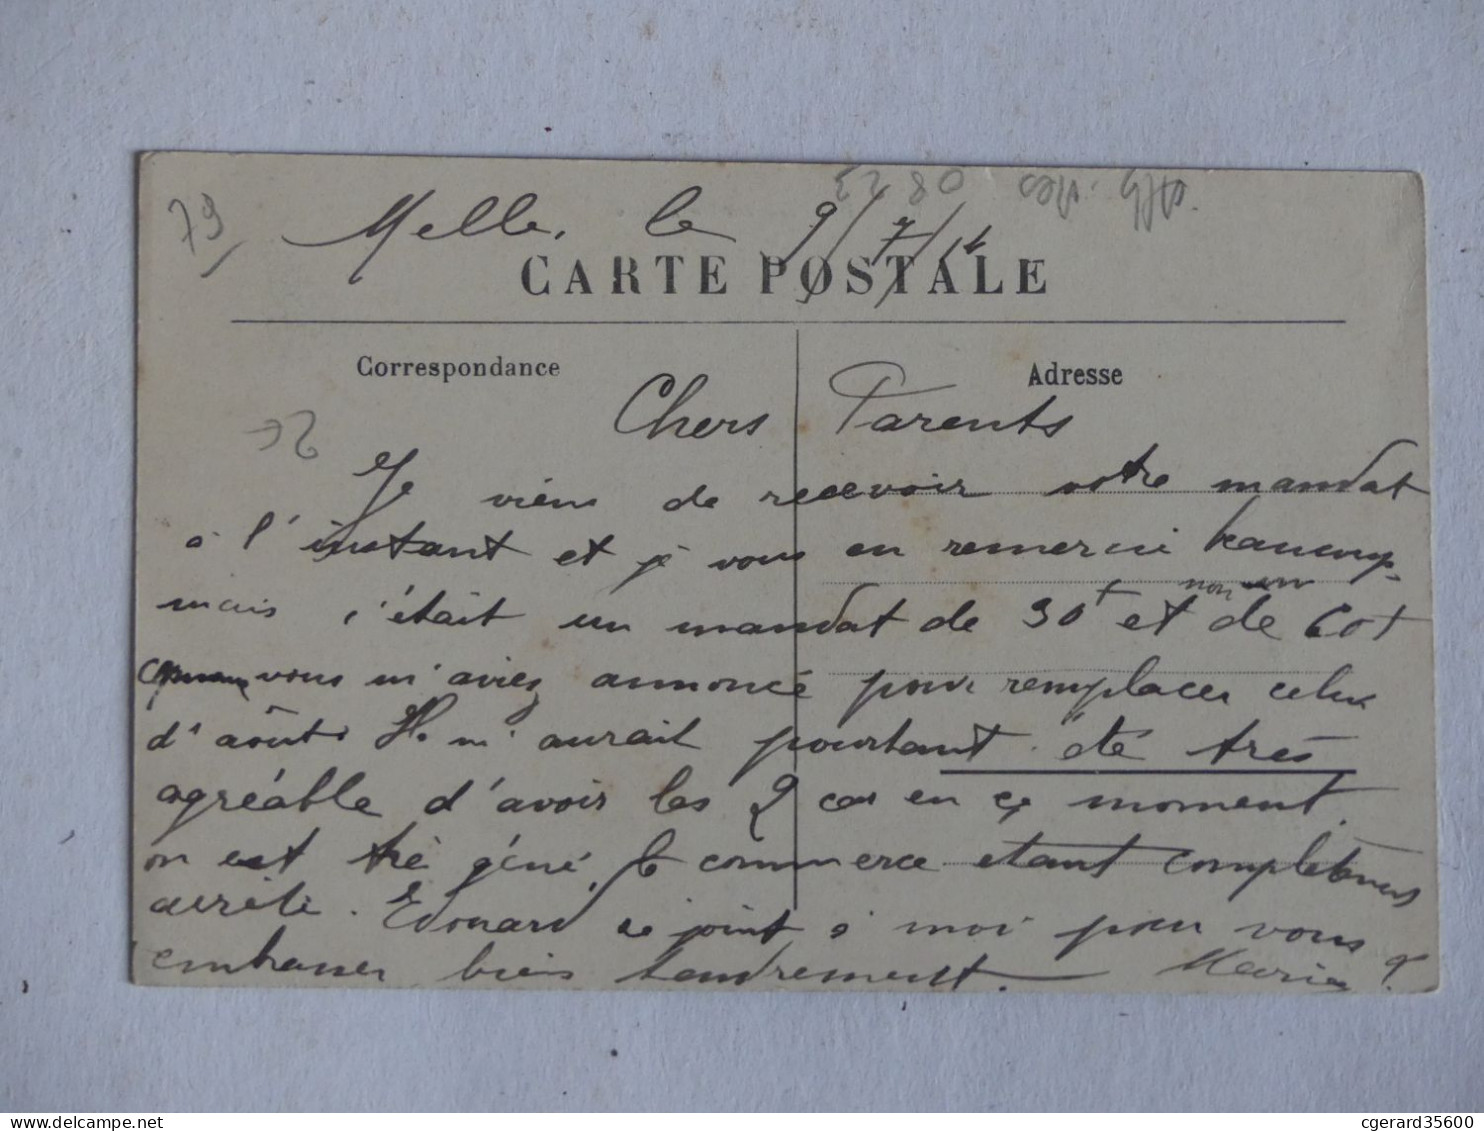 79
Melle, le 9/7/1
CARTE POSTALE
Correspondance
Adresse
Chers Parents
Je viens de recevoir votre mandat
à l'instant et je vous en remercie beaucoup.
mais c'était un mandat de 30f et non un de 60f
comme vous m'aviez annoncé pour remplacer celui
d'août. Il m'aurait pourtant été très
agréable d'avoir les 2 car en ce moment
on est trè géné. Le commerce étant complètement
arrêté. Edouard se joint à moi pour vous
embrasser bien tendrement. — Maria
cgerard35600